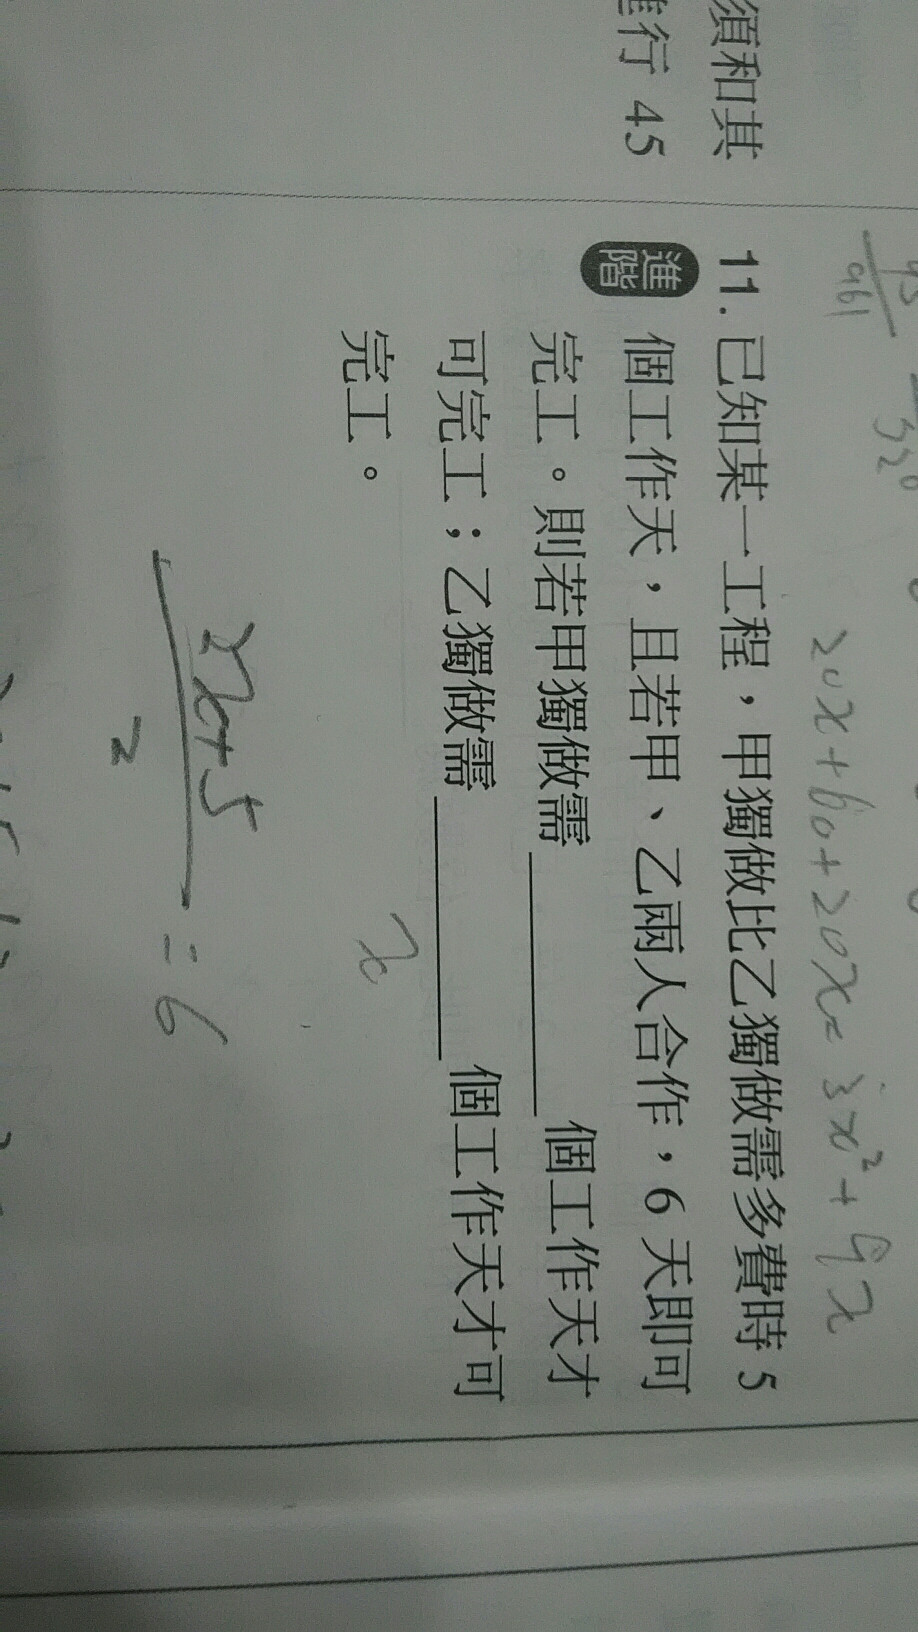 須和其
行 45
20x+60+20x=3x²+9x
11. 已知某一工程,甲獨做比乙獨做需多費時 5
進階
個工作天,且若甲、乙兩人合作,6 天即可
完工。則若甲獨做需________個工作天才
可完工;乙獨做需________個工作天才可
完工。
x
2x+5
2
=6